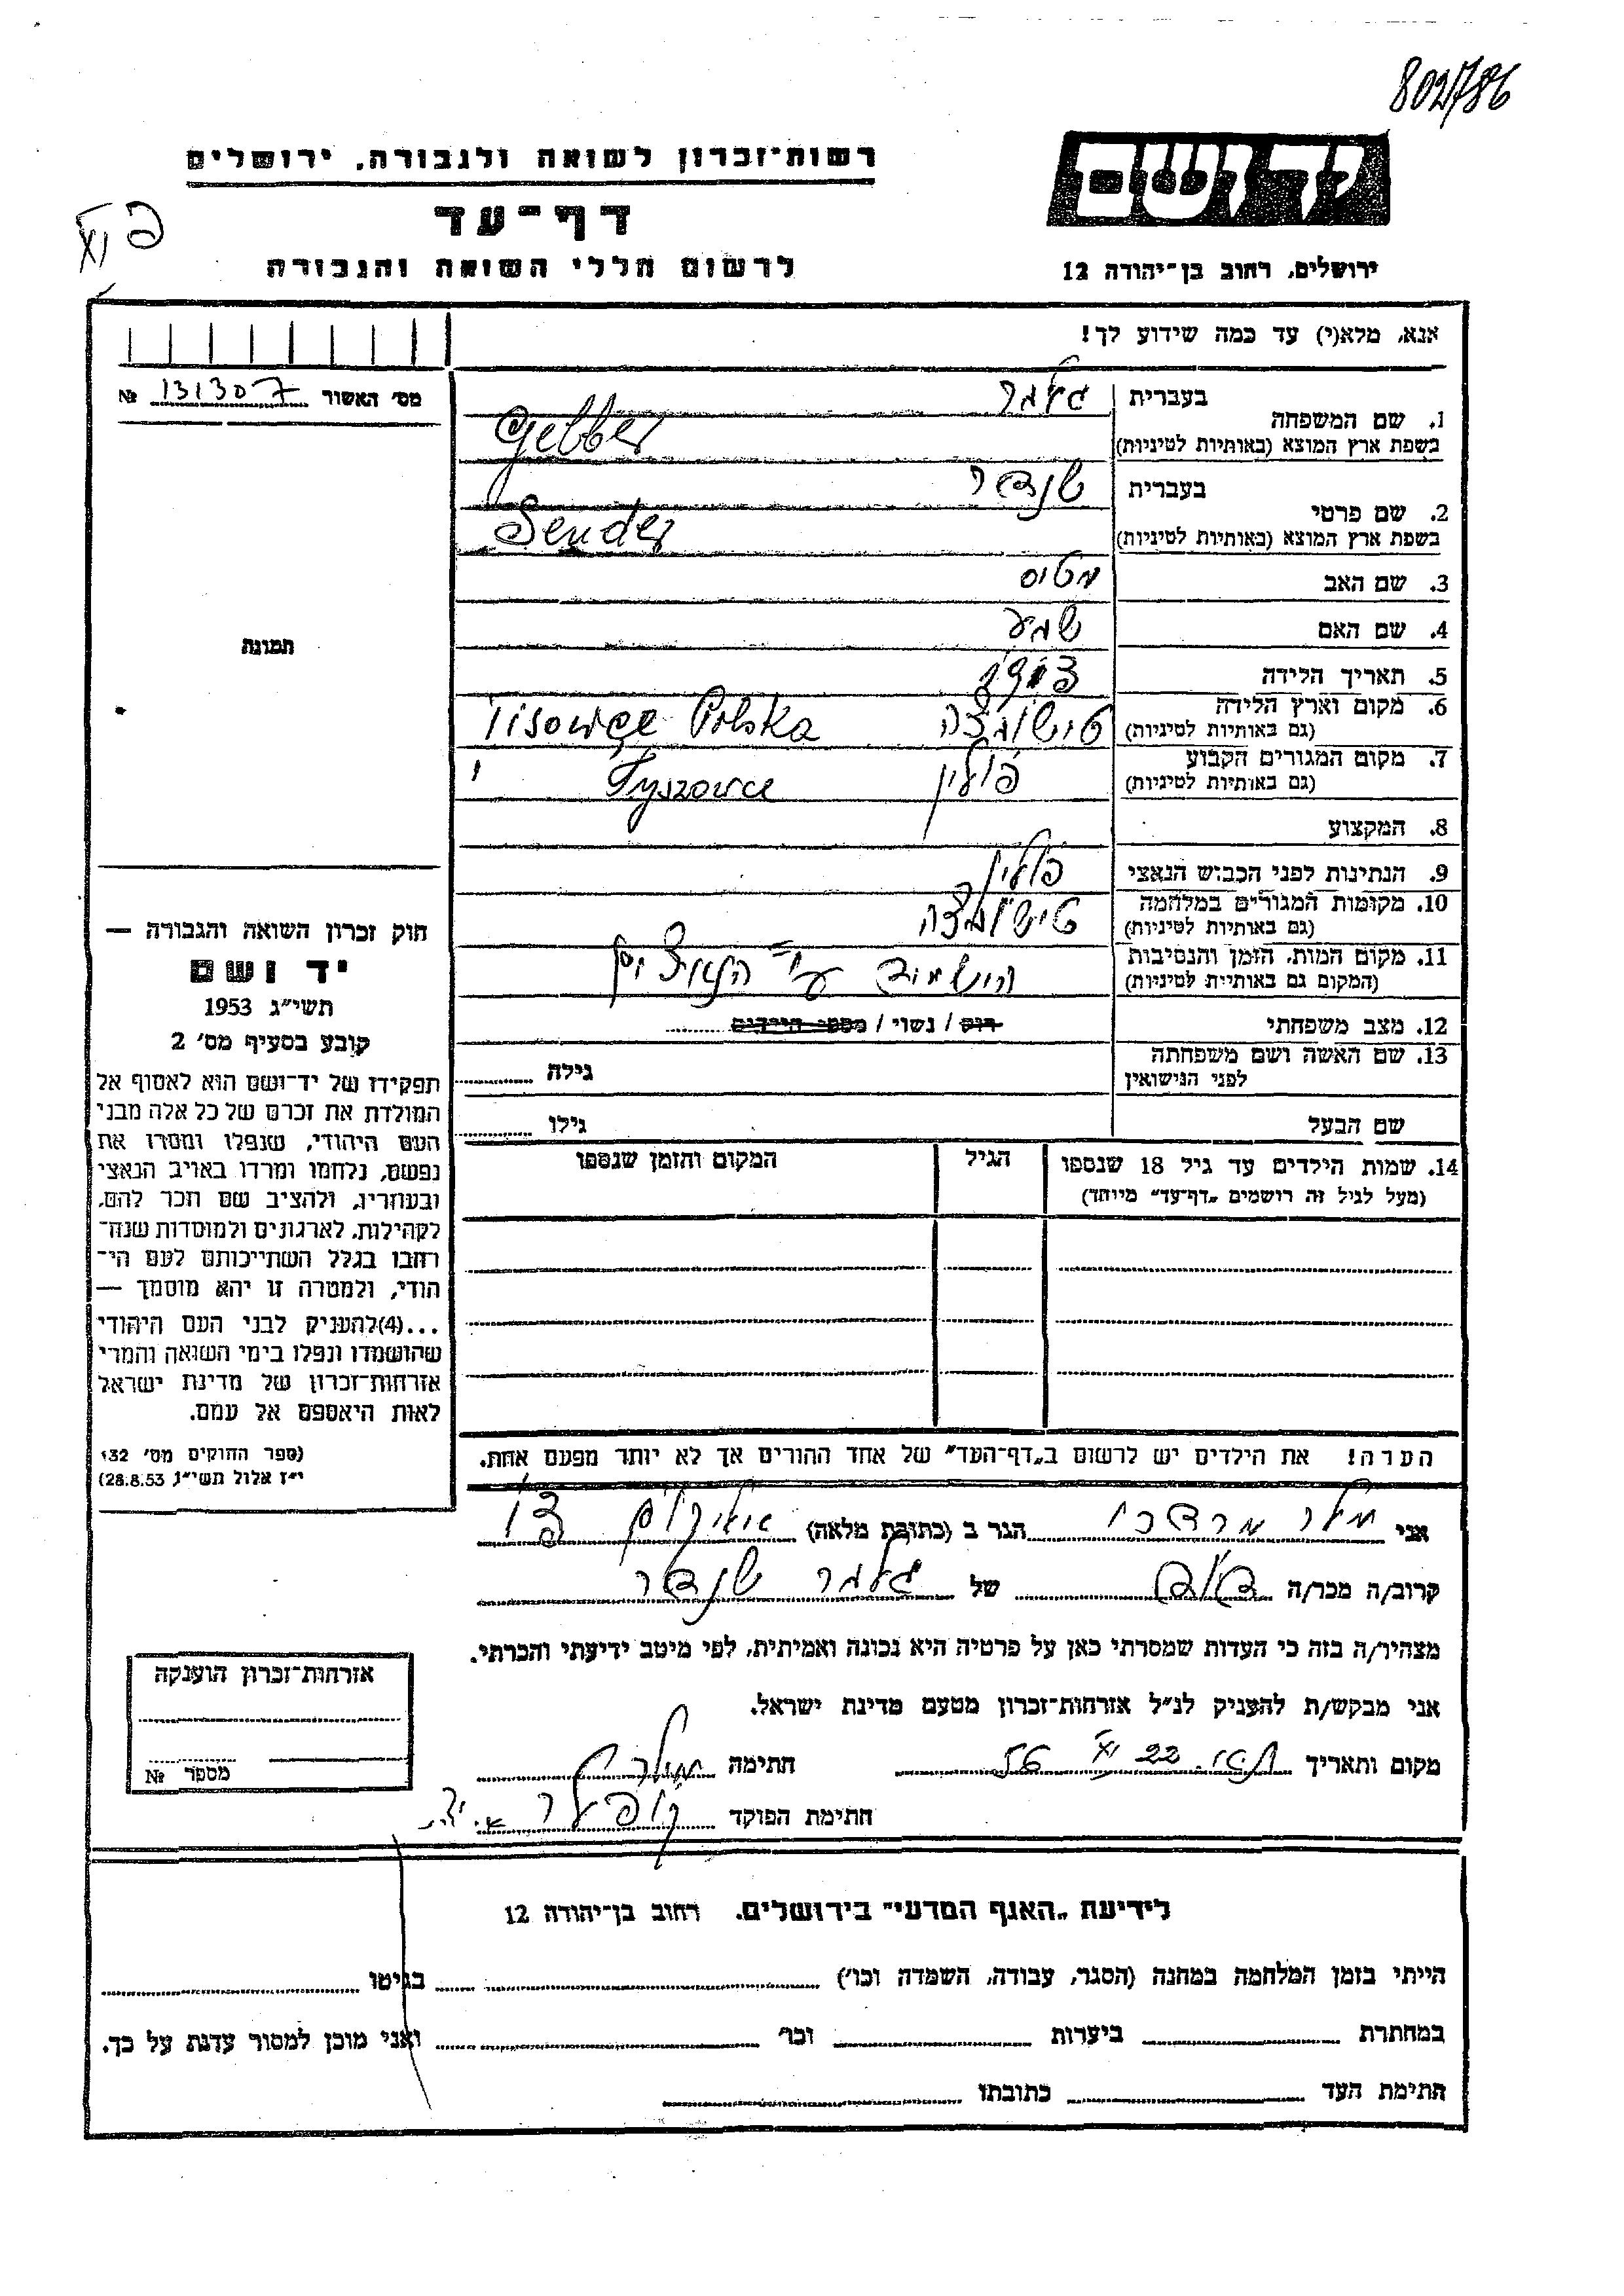 802/786
רשות־זכרון לשואה ולגבורה, ירושלים
יד ושם
דף־עד
לרשום חללי השואה והגבורה
ירושלים, רחוב בן־יהודה 12
אנא, מלא(י) עד כמה שידוע לך!
מס׳ האשור 131307 №
1. שם המשפחה
בעברית
בשפת ארץ המוצא (באותיות לטיניות)
Gelber
2. שם פרטי
בעברית שנדר
בשפת ארץ המוצא (באותיות לטיניות) Sender
3. שם האב מטיס
4. שם האם
5. תאריך הלידה
6. מקום וארץ הלידה
(גם באותיות לטיניות) טישוביצה Tisowce Polska
7. מקום המגורים הקבוע
(גם באותיות לטיניות) פולין Tyszowce
8. המקצוע
9. הנתינות לפני הכבוש הנאצי פולין
10. מקומות המגורים במלחמה
(גם באותיות לטיניות) טישוביצה
11. מקום המות, הזמן והנסיבות
(המקום גם באותיות לטיניות) הושמד ע״י הנאצים
12. מצב משפחתי רוק / נשוי / מספר הילדים
13. שם האשה ושם משפחתה
לפני הנישואין
גילה
שם הבעל גילו
14. שמות הילדים עד גיל 18 שנספו
(מעל לגיל זה רושמים „דף־עד” מיוחד)
הגיל
המקום והזמן שנספו
הערה! את הילדים יש לרשום ב„דף־העד” של אחד ההורים אך לא יותר מפעם אחת.
תמונה
חוק זכרון השואה והגבורה —
יד ושם
תשי״ג 1953
קובע בסעיף מס׳ 2
תפקידו של יד־ושם הוא לאסוף אל
המולדת את זכרם של כל אלה מבני
העם היהודי, שנפלו ומסרו את
נפשם, נלחמו ומרדו באויב הנאצי
ובעוזריו, ולהציב שם וזכר להם,
לקהילות, לארגונים ולמוסדות שנח־
רבו בגלל השתייכותם לעם הי־
הודי, ולמטרה זו יהא מוסמך —
...(4)להעניק לבני העם היהודי
שהושמדו ונפלו בימי השואה והמרי
אזרחות־זכרון של מדינת ישראל
לאות היאספם אל עמם.
(ספר החוקים מס׳ 132
י״ז אלול תשי״ג 28.8.53)
אני מרדכי הגר ב (כתובת מלאה)
קרוב/ה מכר/ה דוד של שנדר
מצהיר/ה בזה כי העדות שמסרתי כאן על פרטיה היא נכונה ואמיתית, לפי מיטב ידיעתי והכרתי.
אני מבקש/ת להעניק לנ״ל אזרחות־זכרון מטעם מדינת ישראל.
מקום ותאריך 22 XI 56 חתימה
חתימת הפוקד
אזרחות־זכרון הוענקה
מספר №
לידיעת „האגף המדעי” בירושלים, רחוב בן־יהודה 12
הייתי בזמן המלחמה במחנה (הסגר, עבודה, השמדה וכו׳) בגיטו
במחתרת ביערות וכו׳ ואני מוכן למסור עדות על כך.
חתימת העד כתובתו